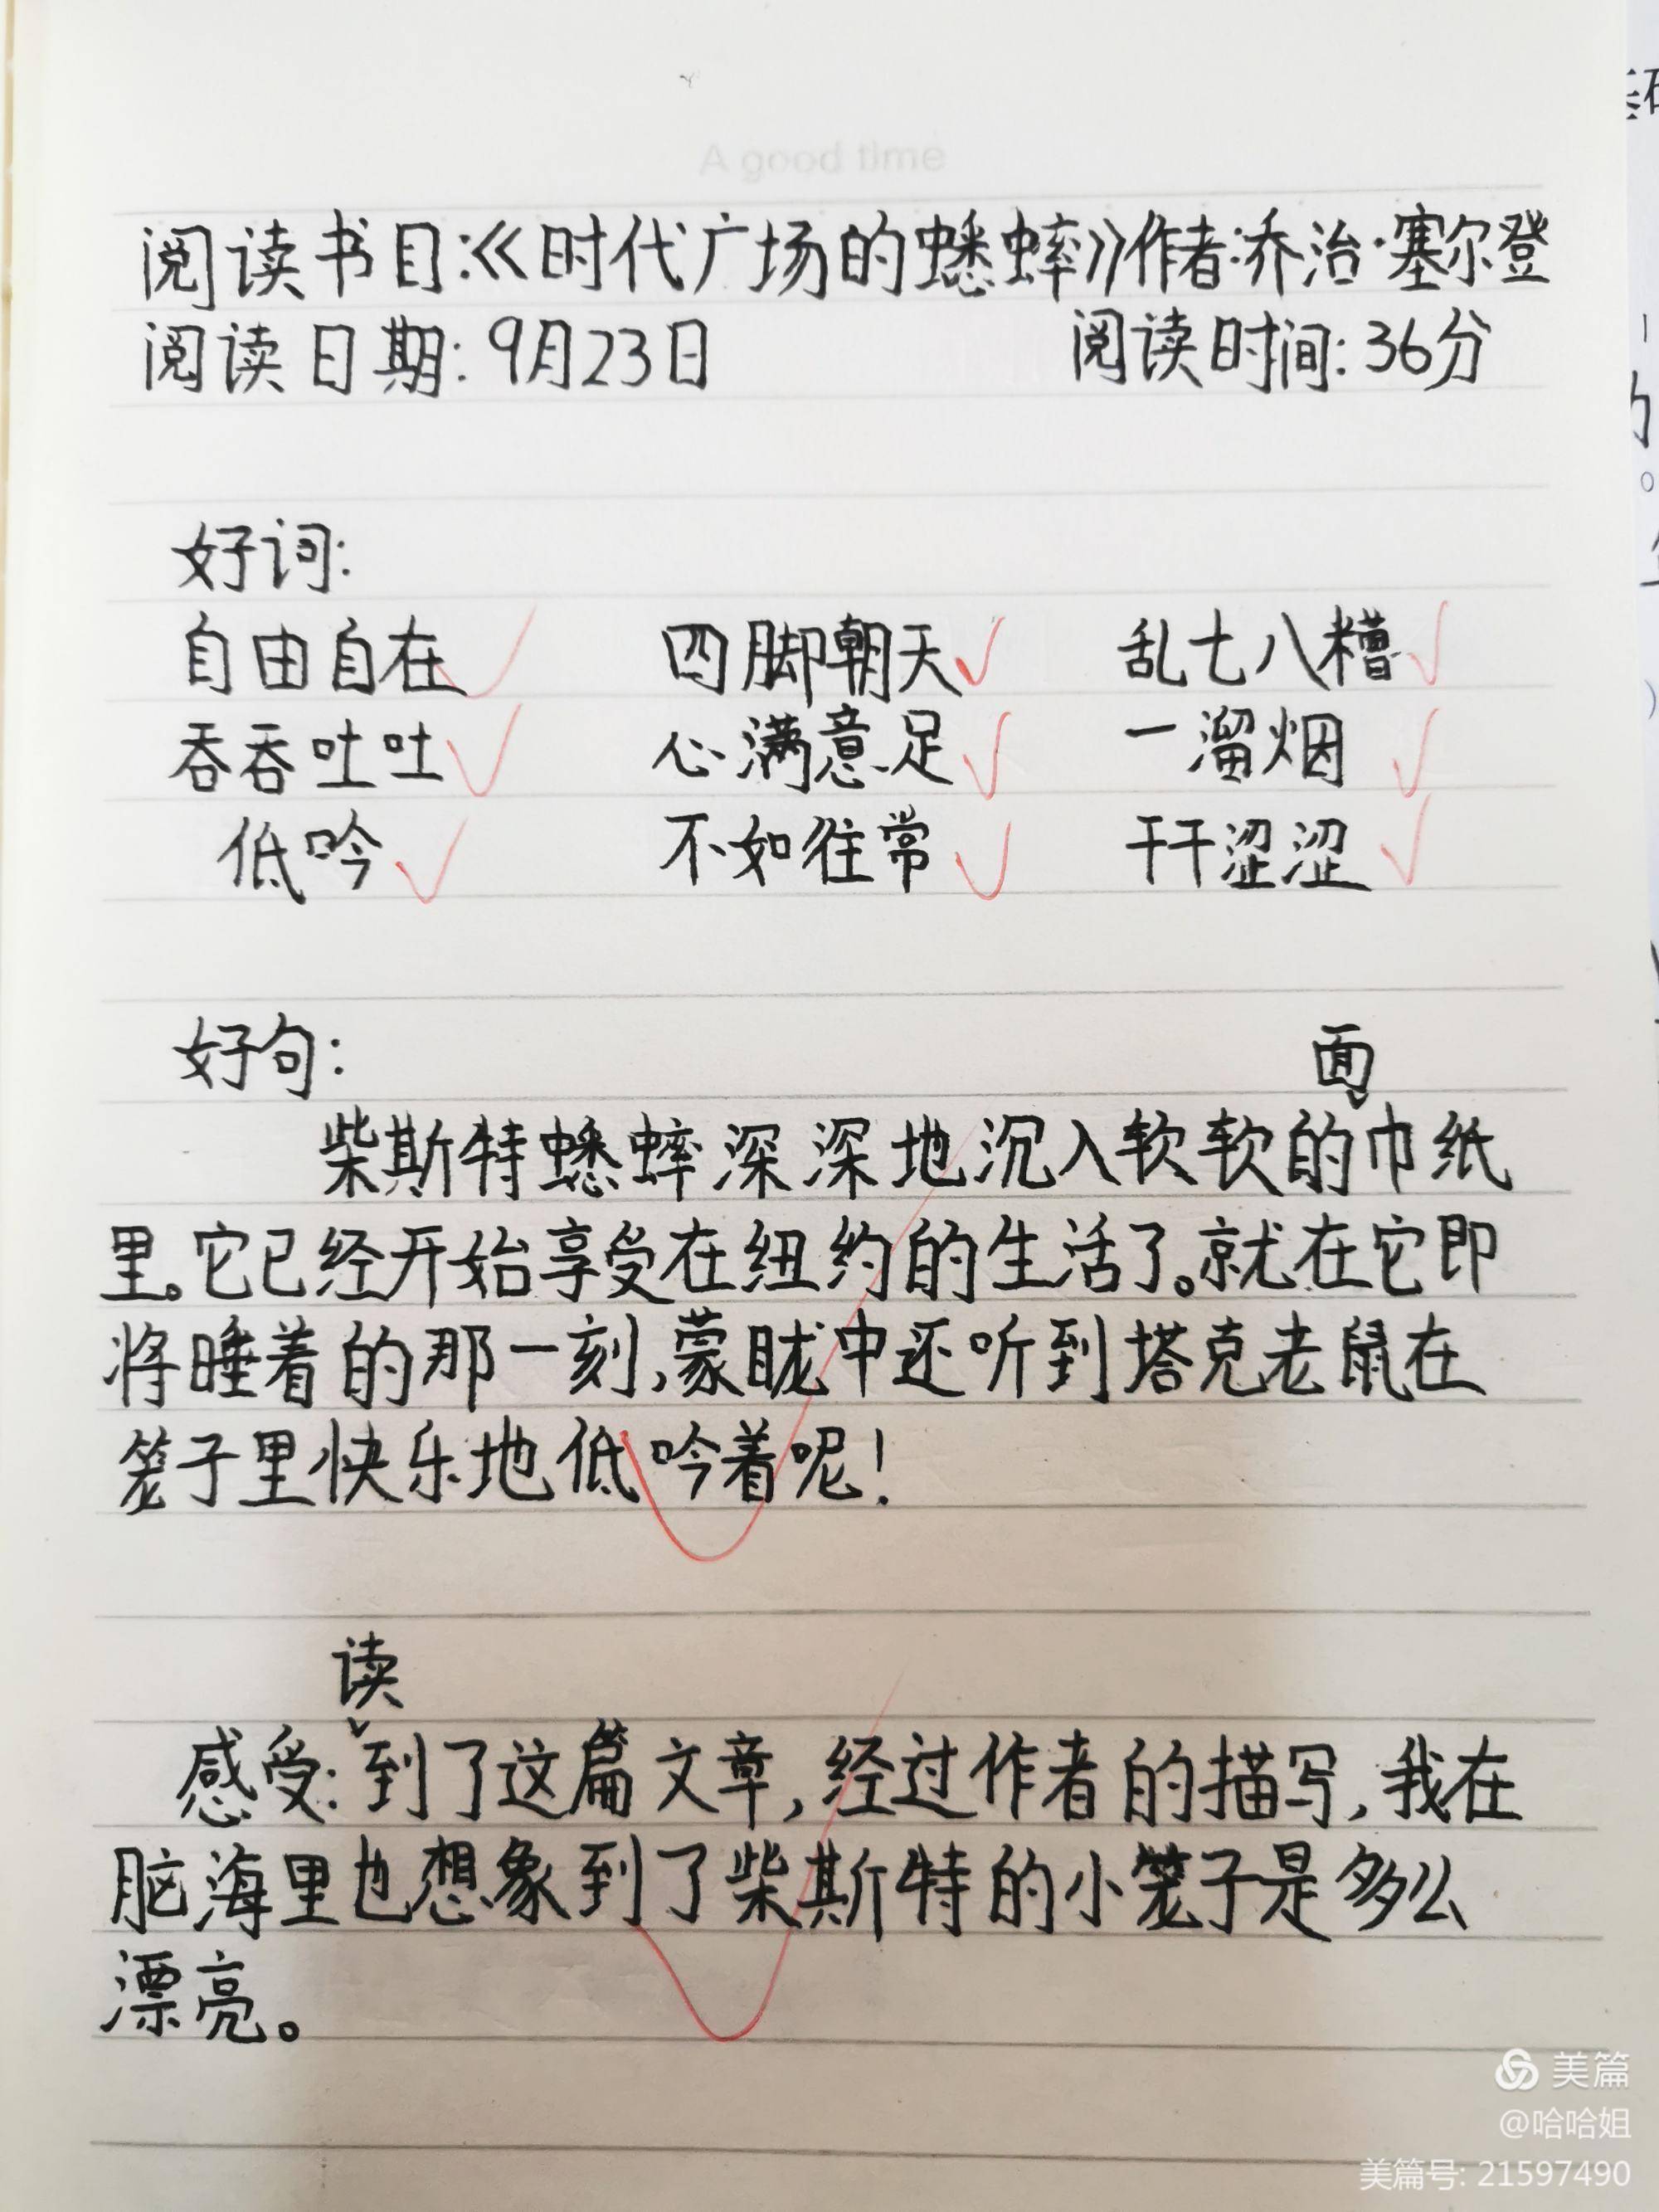 A good time
阅读书目:《时代广场的蟋蟀》作者:乔治·塞尔登
阅读日期: 9月23日 阅读时间: 36分
好词:
自由自在 四脚朝天 乱七八糟
吞吞吐吐 心满意足 一溜烟
低吟 不如往常 干干涩涩
好句:
面
柴斯特蟋蟀深深地沉入软软的巾纸
里。它已经开始享受在纽约的生活了。就在它即
将睡着的那一刻,蒙眬中还听到塔克老鼠在
笼子里快乐地低吟着呢!
读
感受:到了这篇文章,经过作者的描写,我在
脑海里也想象到了柴斯特的小笼子是多么
漂亮。
美篇
@哈哈姐
美篇号: 21597490